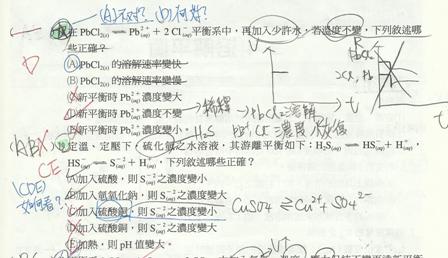 (A)不対? (D)何新?
在 PbCl2(s) ⇌ Pb2+(aq) + 2 Cl-(aq) 平衡系中,再加入少許水,若溫度不變,下列敘述哪
些正確?
(A) PbCl2(s) 的溶解速率變快
(B) PbCl2(s) 的溶解速率變慢
(C)新平衡時 Pb2+(aq) 濃度變大
(D)新平衡時 Pb2+(aq) 濃度不變 → 稀釋 → PbCl2溶解
(E)新平衡時 Pb2+(aq) 濃度變小。 H2S Pb2+, Cl- 濃度
定溫、定壓下,硫化氫之水溶液,其游離平衡如下:H2S(aq) ⇌ HS-(aq) + H+(aq),
HS-(aq) ⇌ S-2(aq) + H+(aq),下列敘述哪些正確?
CE
(A)加入硫酸,則 S-2(aq) 之濃度變大
(CDE)
如何看?
(B)加入氫氧化鈉,則 S-2(aq) 之濃度變大
(C)加入硫酸銅,則 S-2(aq) 之濃度變小 CuSO4 ⇌ Cu2+ + SO4 2-
(D)加入硫酸銅,則 S-2(aq) 之濃度變大
(E)加熱,則 pH 值變大。